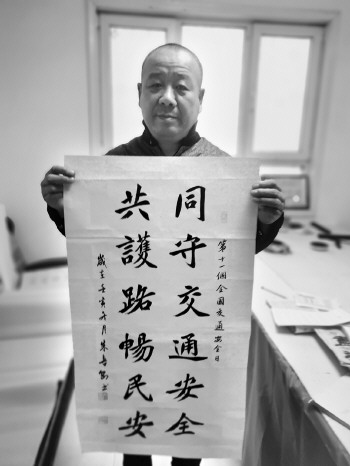 第十一個全国交通安全日
同守交通安全
共護路暢民安
歲在壬寅冬月朱